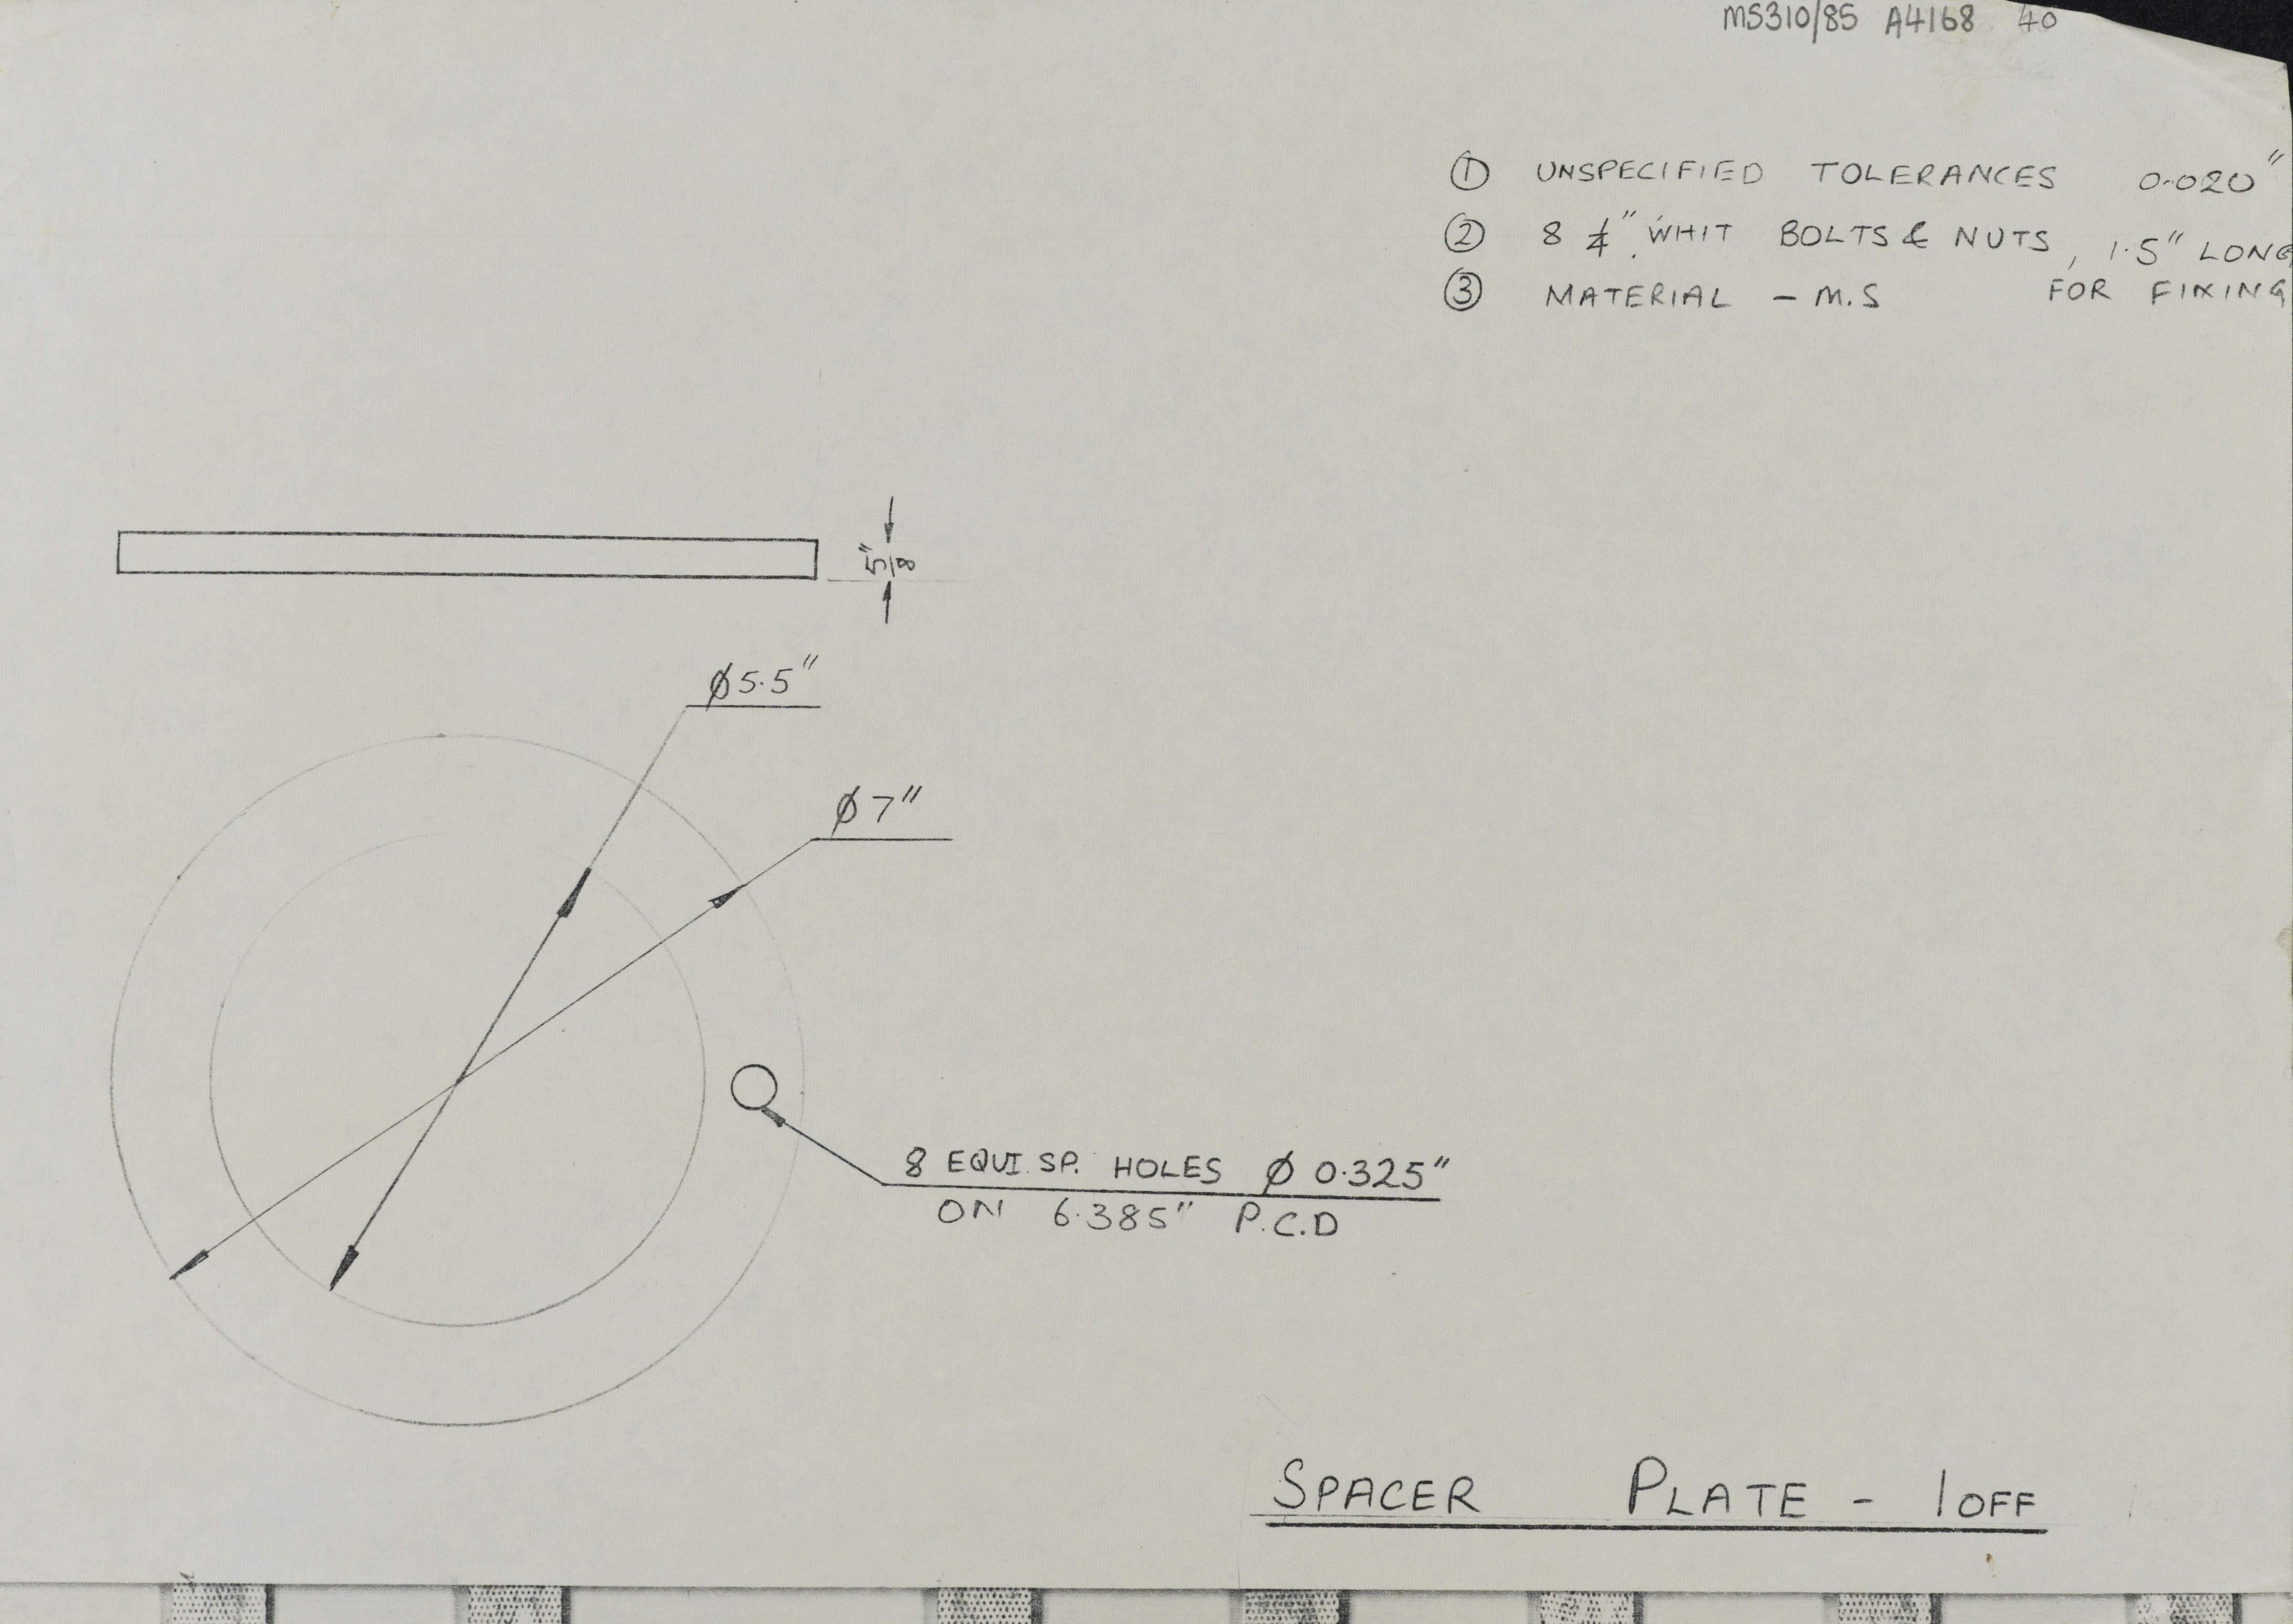 MS310/85 A4168 40
① UNSPECIFIED TOLERANCES 0.020"
② 8 1/4" WHIT BOLTS & NUTS, 1.5" LONG
FOR FIXING
③ MATERIAL - M.S
5/8"
ϕ5.5"
ϕ7"
8 EQUI. SP. HOLES ϕ 0.325"
ON 6.385" P.C.D
SPACER PLATE - 1 OFF